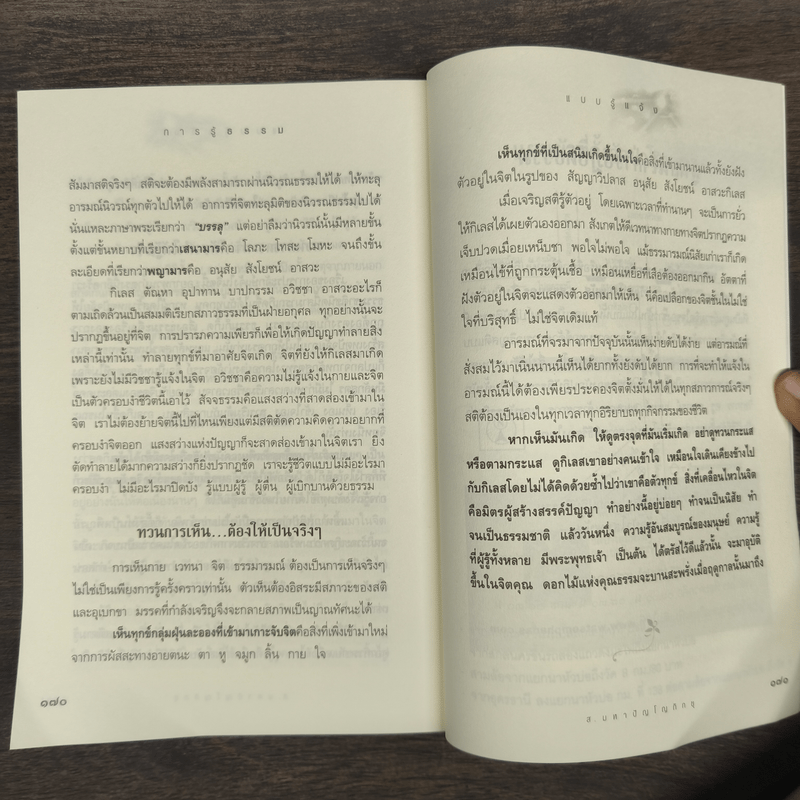 การรู้ธรรม
สัมมาสติจริงๆ สติจะต้องมีพลังสามารถผ่านนิวรณธรรมให้ได้ ให้ทะลุ
อารมณ์นิวรณ์ทุกตัวไปให้ได้ อาการที่จิตทะลุมิติของนิวรณธรรมไปได้
นั่นแหละภาษาพระเรียกว่า "บรรลุ" แต่อย่าลืมว่านิวรณ์นั้นมีหลายขั้น
ตั้งแต่ขั้นหยาบที่เรียกว่าเสนามารคือ โลภะ โทสะ โมหะ จนถึงขั้น
ละเอียดที่เรียกว่าพญามารคือ อนุสัย สังโยชน์ อาสวะ
กิเลส ตัณหา อุปาทาน บาปกรรม อวิชชา อาสวะอะไรก็
ตามเถิดล้วนเป็นสมมติเรียกสภาวธรรมที่เป็นฝ่ายอกุศล ทุกอย่างนั้นจะ
ปรากฏขึ้นอยู่ที่จิต การปรารภความเพียรก็เพื่อให้เกิดปัญญาทำลายสิ่ง
เหล่านี้เท่านั้น ทำลายทุกข์ที่มาอาศัยจิตเกิด จิตที่ยังให้กิเลสมาเกิด
เพราะยังไม่มีวิชชารู้แจ้งในจิต อวิชชาคือความไม่รู้แจ้งในกายและจิต
เป็นตัวครอบงำชีวิตนี้เอาไว้ สัจจธรรมคือแสงสว่างที่สาดส่องเข้ามาใน
จิต เราไม่ต้องย้ายจิตนี้ไปที่ไหนเพียงแต่มีสติตัดความคิดความอยากที่
ครอบงำจิตออก แสงสว่างแห่งปัญญาก็จะสาดส่องเข้ามาในจิตเรา ยิ่ง
ตัดทำลายได้มากความสว่างก็ยิ่งปรากฏชัด เราจะรู้ชีวิตแบบไม่มีอะไรมา
ครอบงำ ไม่มีอะไรมาปิดบัง รู้แบบผู้รู้ ผู้ตื่น ผู้เบิกบานด้วยธรรม
ทวนการเห็น...ต้องให้เป็นจริงๆ
การเห็นกาย เวทนา จิต ธรรมารมณ์ ต้องเป็นการเห็นจริงๆ
ไม่ใช่เป็นเพียงการรู้ครั้งคราวเท่านั้น ตัวเห็นต้องอิสระมีสภาวะของสติ
และอุเบกขา มรรคที่กำลังเจริญจึงจะกลายสภาพเป็นญาณทัศนะได้
เห็นทุกข์กลุ่มฝุ่นละอองที่เข้ามาเกาะจับจิตคือสิ่งที่เพิ่งเข้ามาใหม่
จากการผัสสะทางอายตนะ ตา หู จมูก ลิ้น กาย ใจ
๑๗๐
แบบรู้แจ้ง
เห็นทุกข์ที่เป็นสนิมเกิดขึ้นในใจคือสิ่งที่เข้ามานานแล้วทั้งยังฝัง
ตัวอยู่ในจิตในรูปของ สัญญาวิปลาส อนุสัย สังโยชน์ อาสวะกิเลส
เมื่อเจริญสติรู้ตัวอยู่ โดยเฉพาะเวลาที่ทำนานๆ จะเป็นการยั่ว
ให้กิเลสได้เผยตัวเองออกมา สังเกตให้ดีเวทนาทางกายทางจิตปรากฏความ
เจ็บปวดเมื่อยเหน็บชา พอใจไม่พอใจ แม้ธรรมารมณ์นิสัยเก่าเราก็เกิด
เหมือนไข้ที่ถูกกระตุ้นเชื้อ เหมือนเหยื่อที่เสือต้องออกมากิน อัตตาที่
ฝังตัวอยู่ในจิตจะแสดงตัวออกมาให้เห็น นี่คือเปลือกของจิตชั้นในไม่ใช่
ใจที่บริสุทธิ์ ไม่ใช่จิตเดิมแท้
อารมณ์ที่จรมาจากปัจจุบันนั้นเห็นง่ายดับได้ง่าย แต่อารมณ์ที่
สั่งสมไว้มาเนิ่นนานนี้เห็นได้ยากทั้งยังดับได้ยาก การที่จะทำให้แจ้งใน
อารมณ์นี้ได้ต้องเพียรประคองจิตตั้งมั่นให้ได้ในทุกสภาวการณ์จริงๆ
สติต้องเป็นเองในทุกเวลาทุกอิริยาบถทุกกิจกรรมของชีวิต
หากเห็นมันเกิด ให้ดูตรงจุดที่มันเริ่มเกิด อย่าดูทวนกระแส
หรือตามกระแส ดูกิเลสเขาอย่างคนเข้าใจ เหมือนใจเดินเคียงข้างไป
กับกิเลสโดยไม่ได้คิดด้วยซ้ำไปว่าเขาคือตัวทุกข์ สิ่งที่เคลื่อนไหวในจิต
คือมิตรผู้สร้างสรรค์ปัญญา ทำอย่างนี้อยู่บ่อยๆ ทำจนเป็นนิสัย ทำ
จนเป็นธรรมชาติ แล้ววันหนึ่ง ความรู้อันสมบูรณ์ของมนุษย์ ความรู้
ที่ผู้รู้ทั้งหลาย มีพระพุทธเจ้า เป็นต้น ได้ตรัสไว้ดีแล้วนั้น จะมาอุบัติ
ขึ้นในจิตคุณ ดอกไม้แห่งคุณธรรมจะบานสะพรั่งเมื่อฤดูกาลนั้นมาถึง
๑๗๑
ส.มหาปัญโญภิกขุ